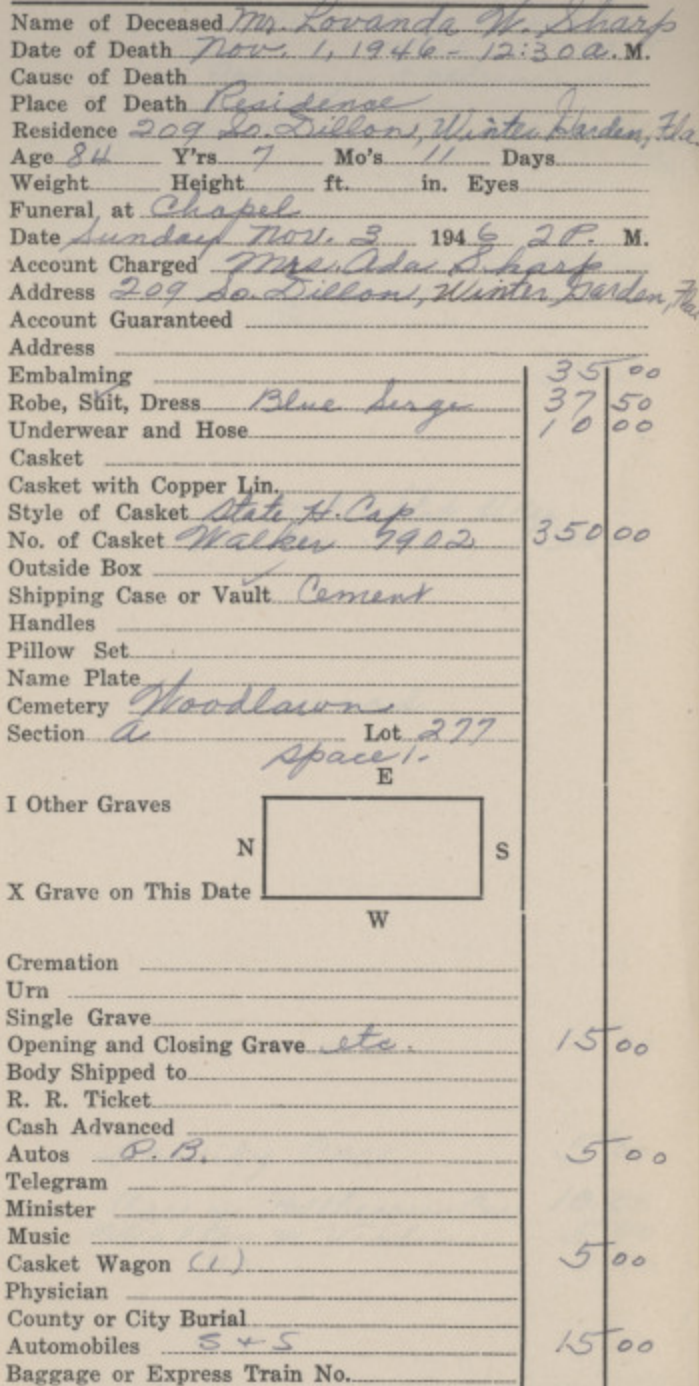 Name of Deceased Mr. Lovanda W. Sharp
Date of Death Nov. 1, 1946 - 12:30 a. M.
Cause of Death
Place of Death Residence
Residence 209 So. Dillon, Winter Garden, Fla.
Age 84 Y'rs 7 Mo's 11 Days
Weight Height ft. in. Eyes
Funeral at Chapel
Date Sunday Nov. 3 1946 2 P. M.
Account Charged Mrs. Ada Sharp
Address 209 So. Dillon, Winter Garden, Fla.
Account Guaranteed
Address
Embalming 35 00
Robe, Suit, Dress Blue Serge 37 50
Underwear and Hose 10 00
Casket
Casket with Copper Lin.
Style of Casket State H. Cap
No. of Casket Walker 7902 350 00
Outside Box
Shipping Case or Vault Cement
Handles
Pillow Set
Name Plate
Cemetery Woodlawn
Section A Lot 277
Space 1.
E
I Other Graves
N S
X Grave on This Date
W
Cremation
Urn
Single Grave
Opening and Closing Grave etc. 15 00
Body Shipped to
R. R. Ticket
Cash Advanced
Autos P. B. 5 00
Telegram
Minister
Music
Casket Wagon (1) 5 00
Physician
County or City Burial
Automobiles S + S 15 00
Baggage or Express Train No.